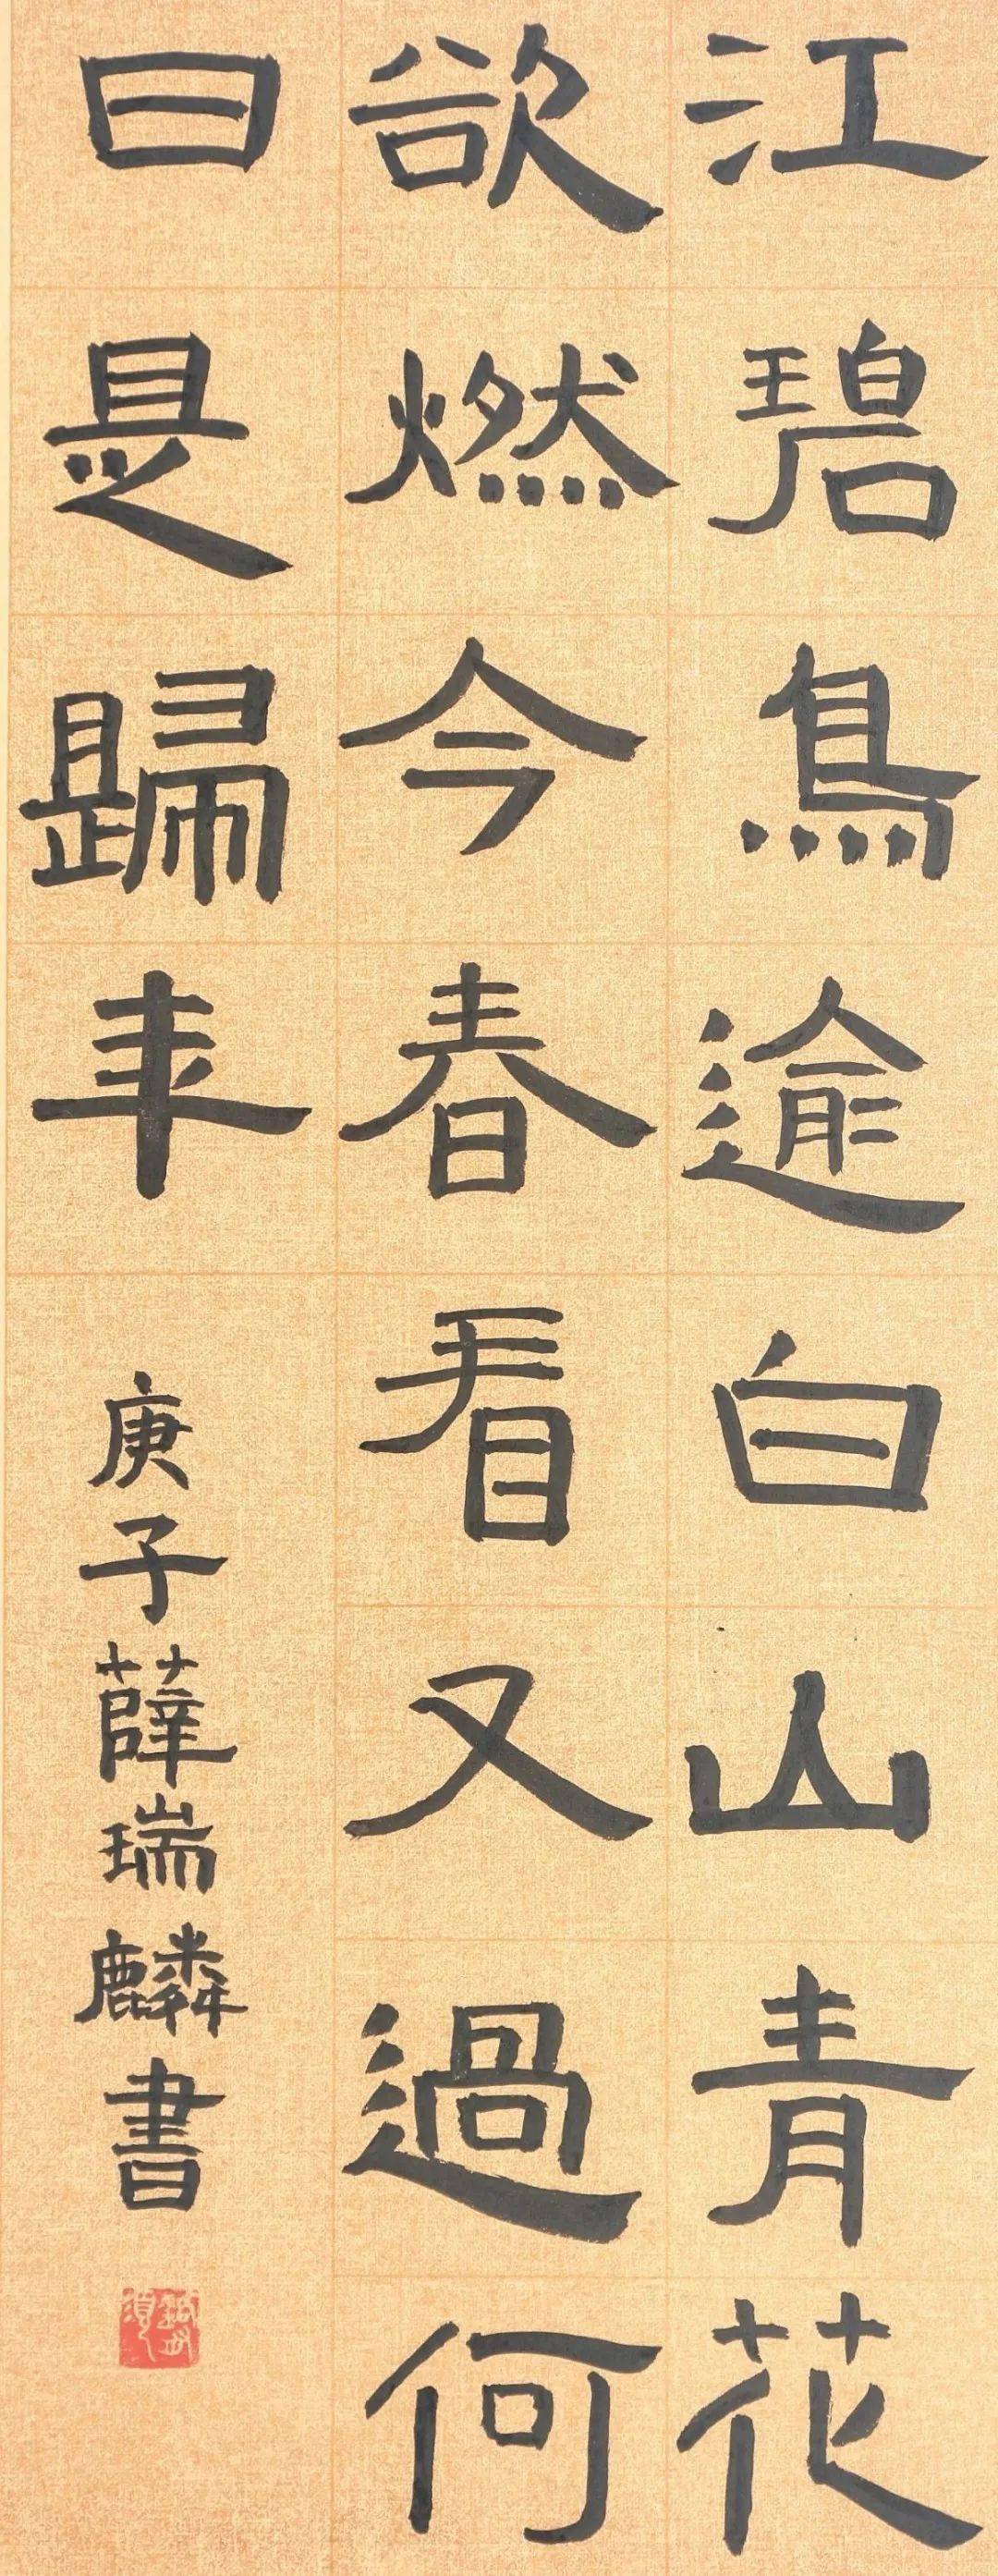 江碧鳥逾白山青花
欲燃今春看又過何
日是歸年
庚子薛瑞麟書